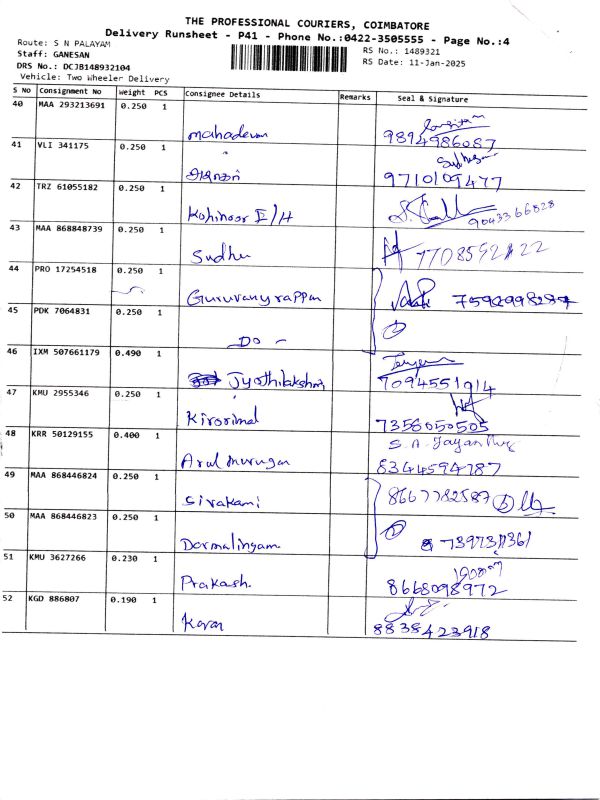 THE PROFESSIONAL COURIERS, COIMBATORE
Delivery Runsheet - P41 - Phone No.:0422-3505555 - Page No.:4
Route: S N PALAYAM
Staff: GANESAN
DRS No.: DCJB148932104
Vehicle: Two Wheeler Delivery
RS No.: 1489321
RS Date: 11-Jan-2025
S No Consignment No Weight PCS Consignee Details Remarks Seal & Signature
40 MAA 293213691 0.250 1
mahadevan 9894986087
41 VLI 341175 0.250 1
9710109477
42 TRZ 61055182 0.250 1
Kohinoor E/H 9043366828
43 MAA 868848739 0.250 1
Sudha
44 PRO 17254518 0.250 1
Guruvanyrappan
45 PDK 7064831 0.250 1
- Do -
46 IXM 507661179 0.490 1
Jyothilakshmi 7094551914
47 KMU 2955346 0.250 1
Kirorimal 7358050505
48 KRR 50129155 0.400 1
Arul murugan 8344594787
49 MAA 868446824 0.250 1
Sivakami 8667782587
50 MAA 868446823 0.250 1
Dormalingam
51 KMU 3627266 0.230 1
Prakash. 8668098972
52 KGD 886807 0.190 1
Karan 8838423918